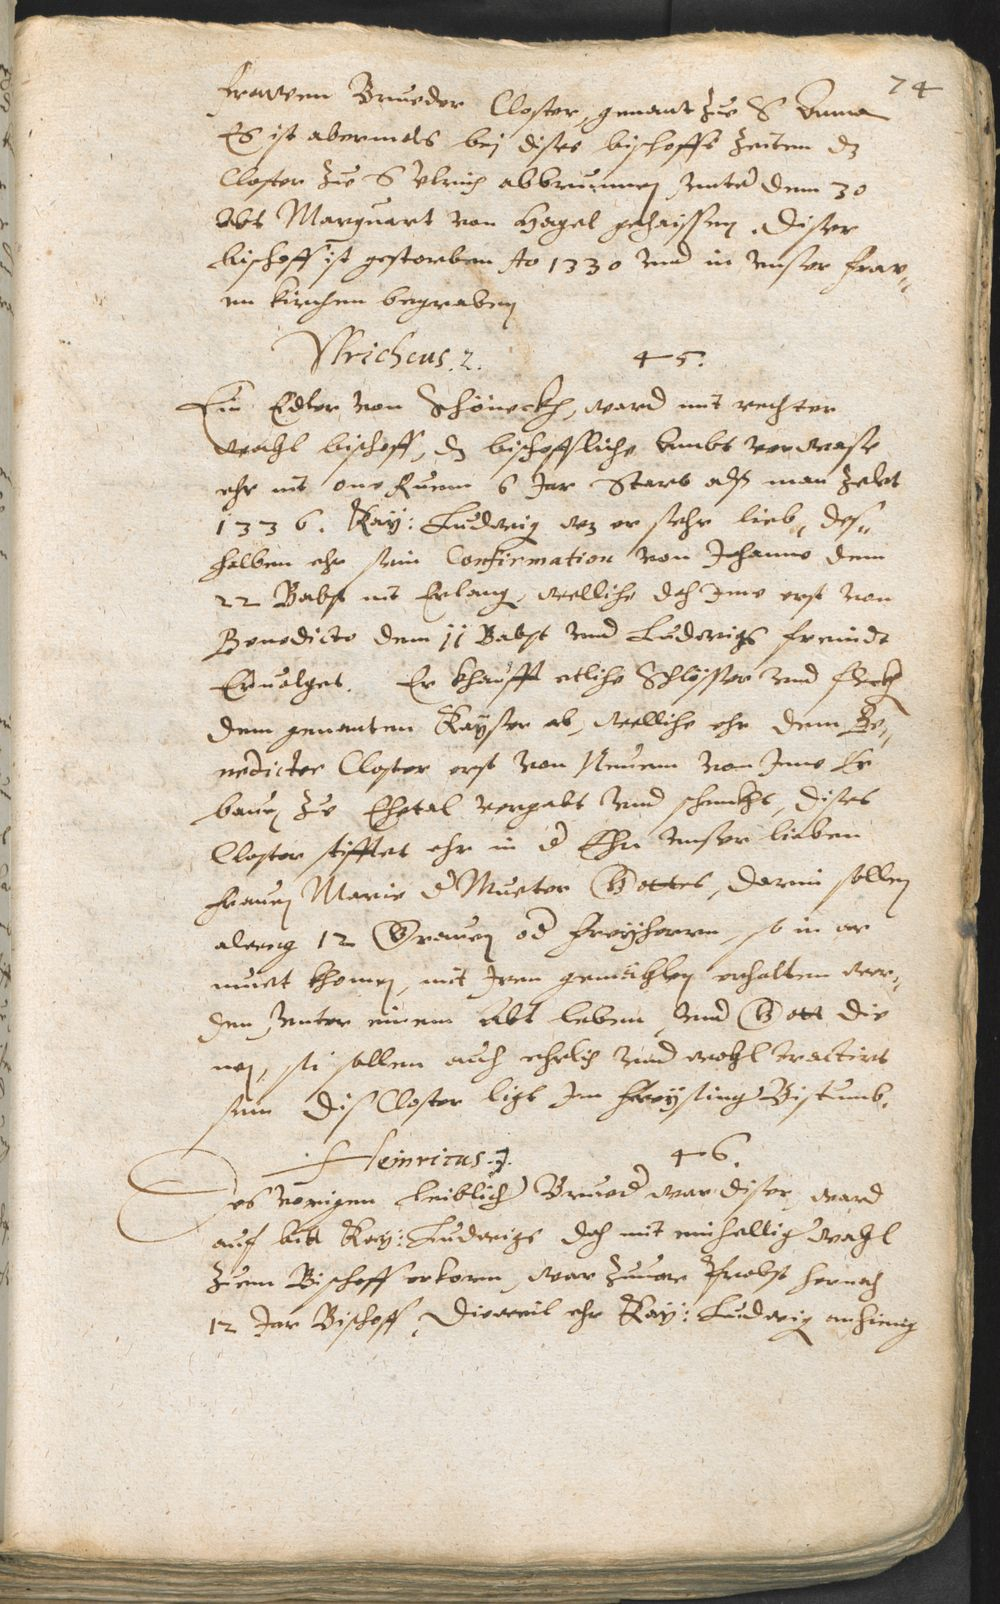 74
frawen Brueder Closter, genant Zue S Anna
Es ist abermals bej dises bischoffs Zeiten dz
Closter Zue S Vlrich abbrunnen vnter dem 30
Abt Marquart von Hagel gehaissen. Diser
bischoff ist gestorben Ao 1330 vnd in vnser fraw„
en kirchen begraben
Vlricheus. 2. 45.
Ein Edler von Schöneckh, ward mit rechter
wahl bischoff, dz bischoffliche Ambt verwaste
ehr nit one Ruem 6 Jar Starb alß man Zelt
1336. Kay: Ludwig wz er sehr lieb, des„
halben ehr sein Confirmation von Johanne dem
22 Babst nit Erlang, welliche doch Ime erst von
Benedicto dem 11 Babst vnd Ludwigs freindt
Eruolget. Er khaufft etliche Schlösser vnd fleckh
dem genanten Kayser ab, welliche ehr dem Be„
nedicter Closter erst von Neuem von Ime Er
bauen Zue Ehetal vergabt vnd schenckht, dises
Closter stifftet ehr in d Ehr vnser lieben
frauen Marie d Mueter Gottes, darin sollen
alweg 12 Grauen od freyherrn, so in ar
muet khomen, mit Iren gemächlen erhalten wer„
den vnter einem Abt leben, vnd Gott die
nen, sie sollen auch ehrlich vnd wohl tractirt
sein Dis Closter ligt Im freysting Bistumb.
Heinricus. 3. 46.
Des vorigen leiblich Brued war diser, ward
auf bitt Kay: Ludwigs doch mit einhellig wahl
Zum Bischoff erkorn, war Zuuor Probst hernach
12 Jar Bischoff, Dieweil ehr Kay: Ludwig anhieng